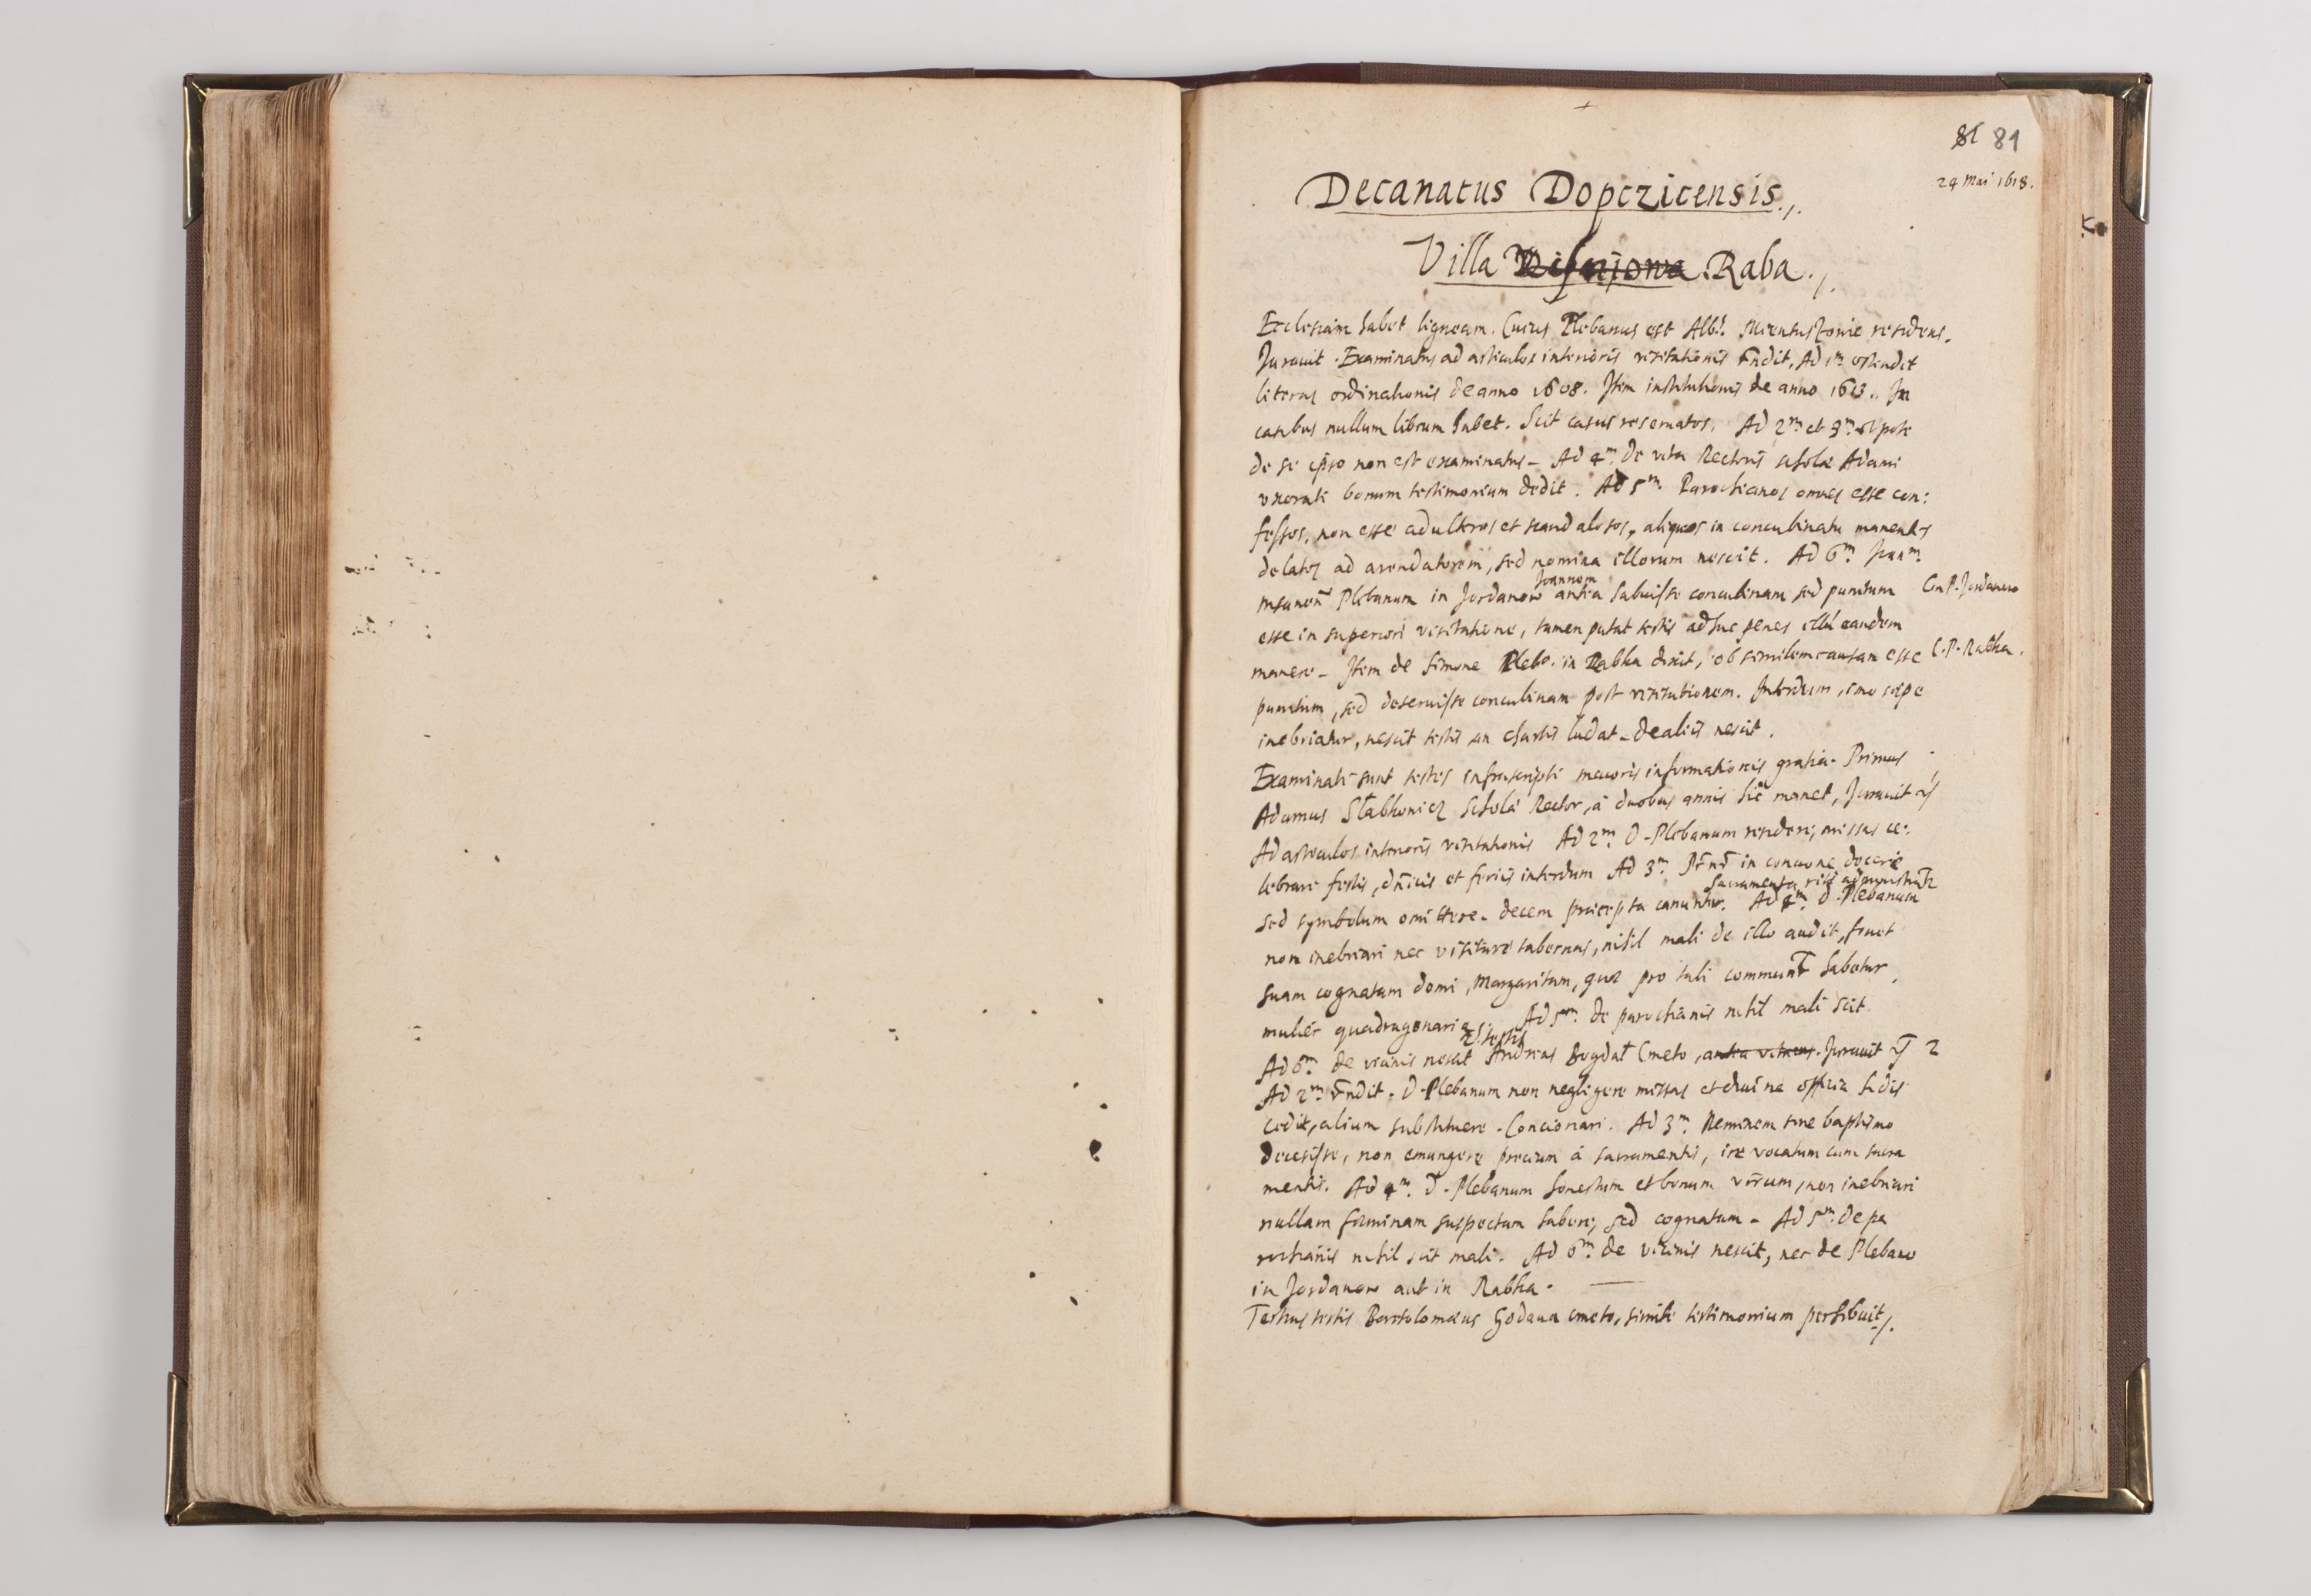 81 81
24 Mai 1618.
Decanatus Dopczicensis.
Villa Raba.
Ecclesiam habet ligneam. Cuius Plebanus est residens.
Juravit. Examinatus ad articulos interioris visitationis Ad 1m ostendit
literas ordinationis de anno 1608. Item institutionis de anno 1613. In
casibus nullum librum habet. Scit casus reservatos. Ad 2m et 3m ut pote
de se ipso non est examinatus - Ad 4m. de vita Rectoris scholæ Adami
uxorati bonum testimonium dedit. Ad 5m. Parochianos omnes esse con:
fessos, non esse adulteros et scandalosos, aliquos in concubinatu manentes
delatos ad arendatorem, sed nomina illorum nescit. Ad 6m.
Joannem
Plebanum in Jordanow antea habuisse concubinam sed punitum
esse in superiori visitatione, tamen putat testis adhuc penes illū eandem
manere - Item de Simone Plebo. in Rabka dixit, ob similem causam esse C. P. Rabka.
punitum, sed deseruisse concubinam post visitationem. Interdum, imo sæpe
inebriatur, nescit testis an chartis ludat - de aliis nescit.
Examinati sunt testes infrascripti maioris informationis gratia. Primus
Adamus scholæ Rector, à duobus annis hic manet, Juravit
Ad articulos interioris visitationis Ad 2m. D. Plebanum residere, missas ce:
lebrare festis, dn̄icis et feriis interdum Ad 3m in concione docere
Sacramenta rite
sed symbolum omittere - decem præcepta canuntur. Ad 4m. D. Plebanum
non inebriari nec visitare tabernas, nihil mali de illo audit, fovet
suam cognatam domi, Margaritam, quæ pro tali habetur,
mulier quadragenaria. Ad 5m. de parochianis nihil mali scit.
2. testis
Ad 6m. de vicinis nescit Andreas Bogdał Cmeto, antea Juravit 2
Ad 2m. D. Plebanum non negligere missas et divina officia
alium substituere. Concionari. Ad 3m. Neminem sine baptismo
decessisse, non emungere precium à sacramentis, ire vocatum cum sacra
mentis. Ad 4m. D. Plebanum honestum et bonum virum, non inebriari
nullam fœminam suspectam habere, sed cognatam - Ad 5m. de pa
rochianis nihil scit mali. Ad 6m. de vicinis nescit, nec de Plebano
in Jordanow aut in Rabka.
Tertius testis Bartolomæus Godawa cmeto, simile testimonium perhibuit.